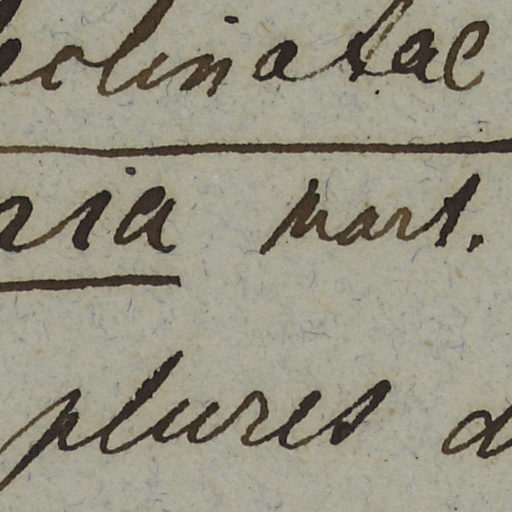 eolinatae
ria Mart.
plures d